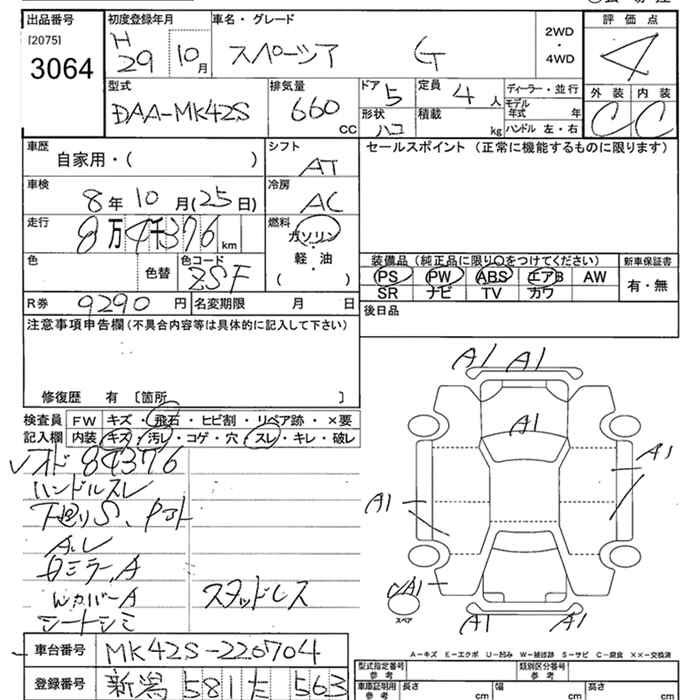 出品番号 初度登録年月 車名・グレード 評価点
[2075] H 29 10月 スペーシア G 2WD・4WD 4
3064
型式 排気量 ドア 5 定員 4人 ディーラー・並行 外装 内装
DAA-MK42S 660 CC 形状 ハコ 積載 kg モデル年式 年 C C
ハンドル 左・右
車歴 シフト セールスポイント (正常に機能するものに限ります)
自家用・( ) AT
車検 冷房
8年10月(25日) AC
走行 燃料
8万4千376km ガソリン・軽・油 ( )
色 色替 色コード ZSF
装備品(純正品に限り○をつけてください) 新車保証書
PS PW ABS エアB AW 有・無
SR ナビ TV カワ
R券 9290円 名変期限 月 日 後日品
注意事項申告欄(不具合内容等は具体的に記入して下さい)
修復歴 有 〔箇所 〕
検査員 FW キズ・飛石・ヒビ割・リペア跡・×要
記入欄 内装 キズ・汚レ・コゲ・穴・スレ・キレ・破レ
A1 A1
A1
A1
A1
A1
A1 A1
スペア
オド 84376
ハンドルスレ
下回りS、
ミラーA
WカバーA スタッドレス
シートシミ
A-キズ E-エクボ U-凹み W-補修跡 S-サビ C-腐食 ××-交換済
車台番号 MK42S-220704
登録番号 新潟 581 た 563
型式指定番号 参考 類別区分番号 参考
車庫証明用 参考 長さ cm 幅 cm 高さ cm